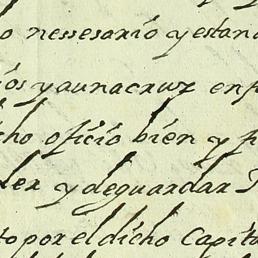 o nessesario y estan
ios y a una cruz en
cho oficio bien y f
der y de guardar
to por el dicho Capita